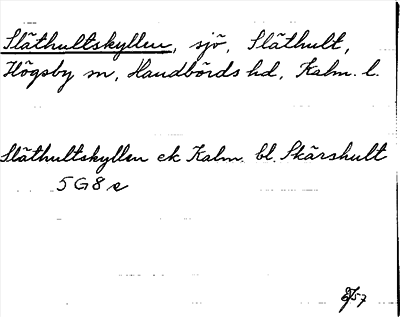 Släthultskyllen, sjö, Släthult,
Högsby sn, Handbörds hd, Kalm. l.
Släthultskyllen ek Kalm. bl. Skärshult
5 G 8 e
57